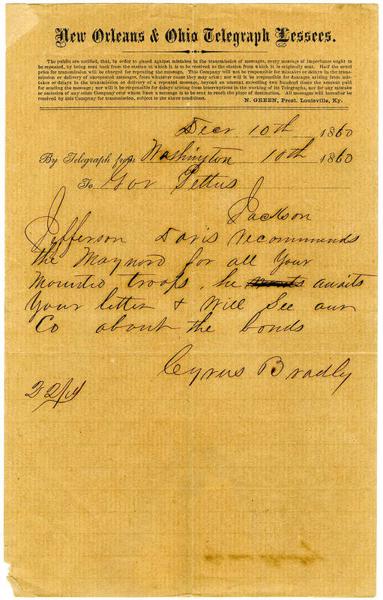 New Orleans & Ohio Telegraph Lessees.
The public are notified, that, in order to guard against mistakes in the transmission of messages, every message of importance ought to
be repeated, by being sent back from the station at which it is to be received to the station from which it is originally sent. Half the usual
price for transmission will be charged for repeating the message. This Company will not be responsible for mistakes or delays in the trans-
mission or delivery of unrepeated messages, from whatever cause they may arise; nor will it be responsible for damages arising from mis-
takes or delays in the transmission or delivery of a repeated message, beyond an amount exceeding two hundred times the amount paid
for sending the message; nor will it be responsible for delays arising from interruptions in the working of its Telegraphs, nor for any mis-
take or omission of any other Company over whose lines a message is to be sent to reach the place of destination. All messages will hereafter be
received by this Company for transmission, subject to the above conditions.
N. GREEN, Prest. Louisville, Ky.
Decr 10th 1860
By Telegraph from Washington 10th 1860
To Gov Pettus
Jackson
Jefferson Davis recommends
the Maynord for all Your
Mounted troops, he awaits
Your letter & will See our
Co about the bonds
Cyrus Bradly
22/4